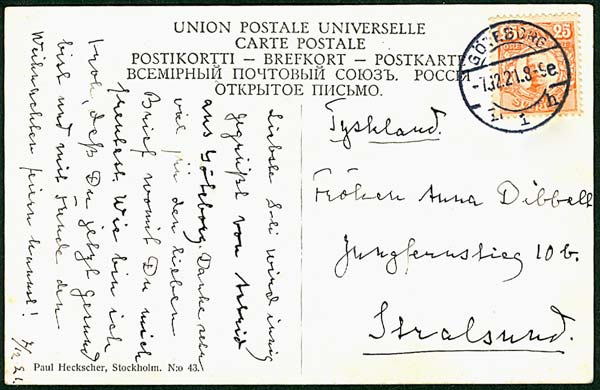 UNION POSTALE UNIVERSELLE
CARTE POSTALE
POSTIKORTTI — BREFKORT — POSTKARTE
ВСЕМІРНЫЙ ПОЧТОВЫЙ СОЮЗЪ. РОССІ
ОТКРЫТОЕ ПИСЬМО.
GÖTEBORG
25
-7.12.21.8-9e.
1
Tyskland.
Fröken Anna Dibbelt
Jungfernstieg 10 b.
Stralsund.
Liebste wird innig
gegrüßt von Astrid
aus Göteborg. Danke sehr
viel für den lieben
Brief womit Du mich
freutest. Wie bin ich
froh, daß Du jetzt gesund
bist und mit Freude den
Weihnachten feiern kannst!
7/12 21.
Paul Heckscher, Stockholm. N:o 43.